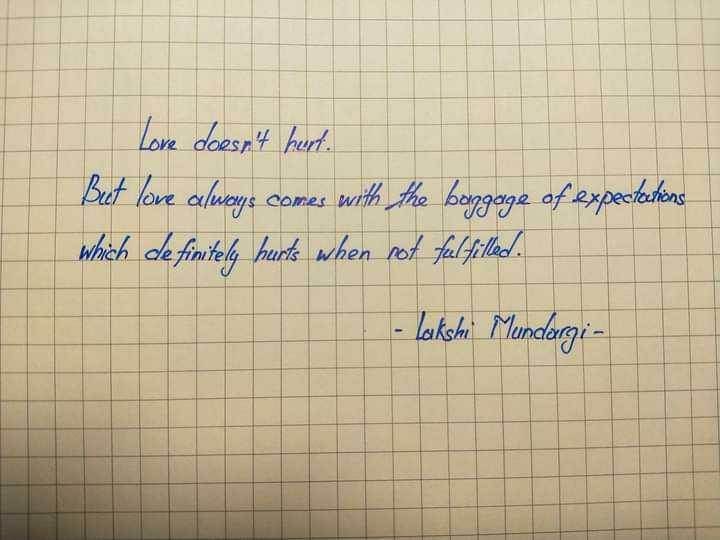 Love doesn't hurt.
But love always comes with the baggage of expectations
which definitely hurts when not fulfilled.
- Lakshi Mundargi -